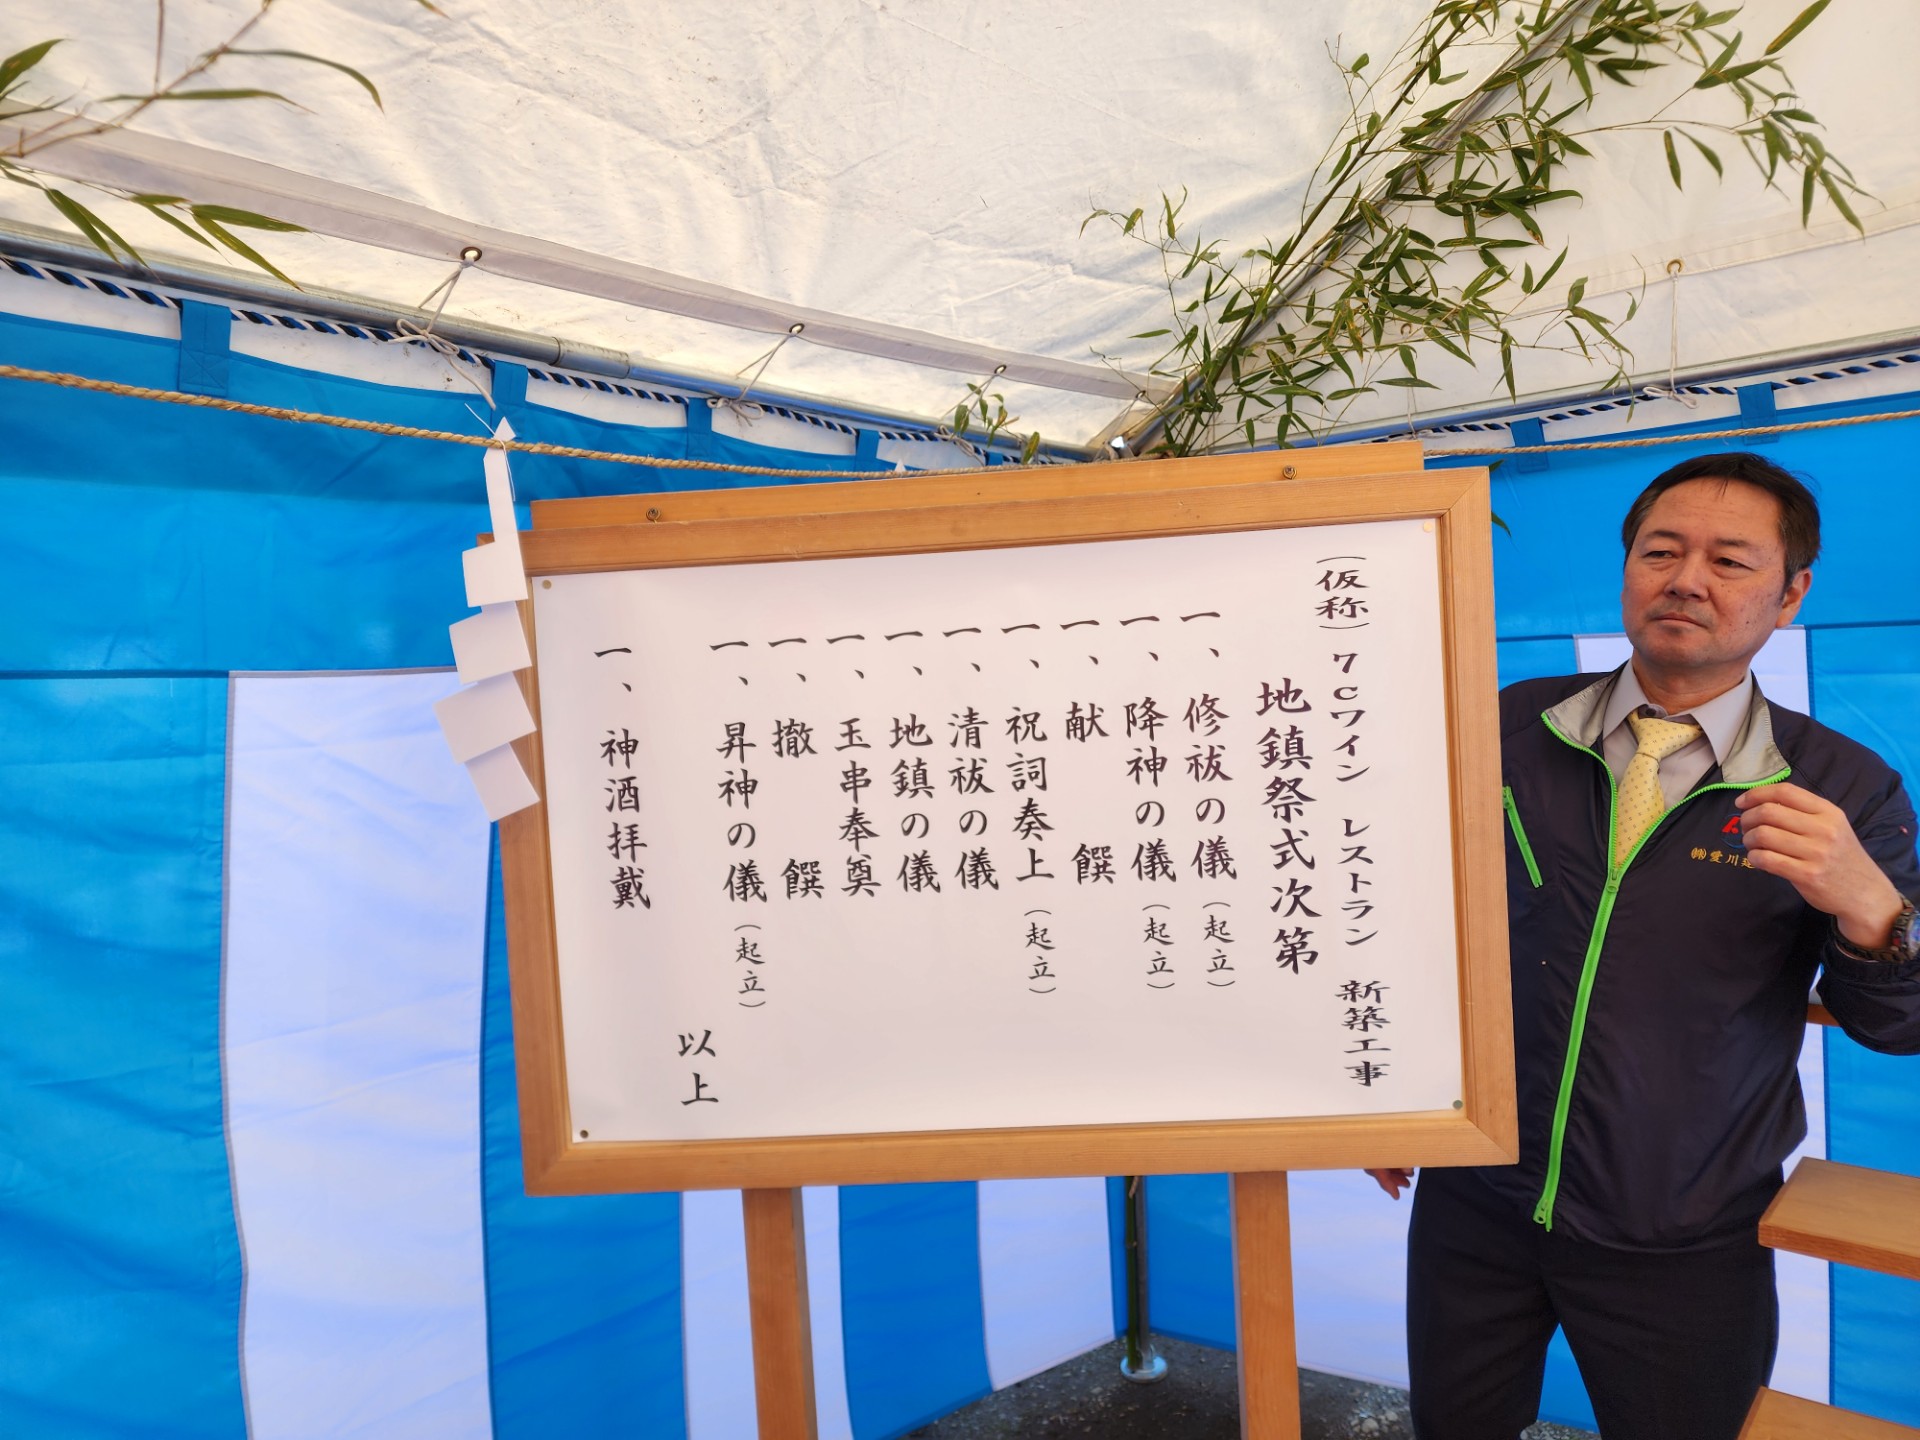 （仮称）7Cワイン　レストラン　新築工事
地鎮祭式次第
一、修祓の儀（起立）
一、降神の儀（起立）
一、献　　饌
一、祝詞奏上（起立）
一、清祓の儀
一、地鎮の儀
一、玉串奉奠
一、撤　　饌
一、昇神の儀（起立）
以上
一、神酒拝戴
㈱愛川建